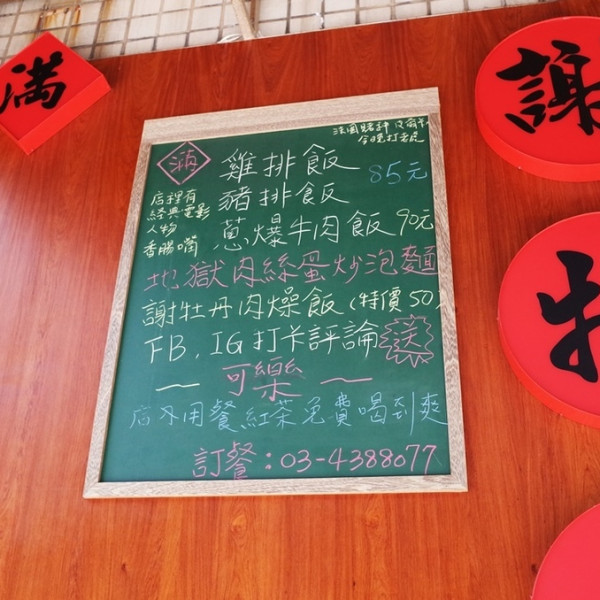 滿
謝
牡
滿
雞排飯
豬排飯 85元
店裡有
經典電影
人物
香腸嘴
蔥爆牛肉飯 90元
地獄肉絲蛋炒泡麵
謝牡丹肉燥飯(特價50)
FB.IG打卡評論送
~可樂~
店內用餐紅茶免費喝到爽
訂餐:03-4388077